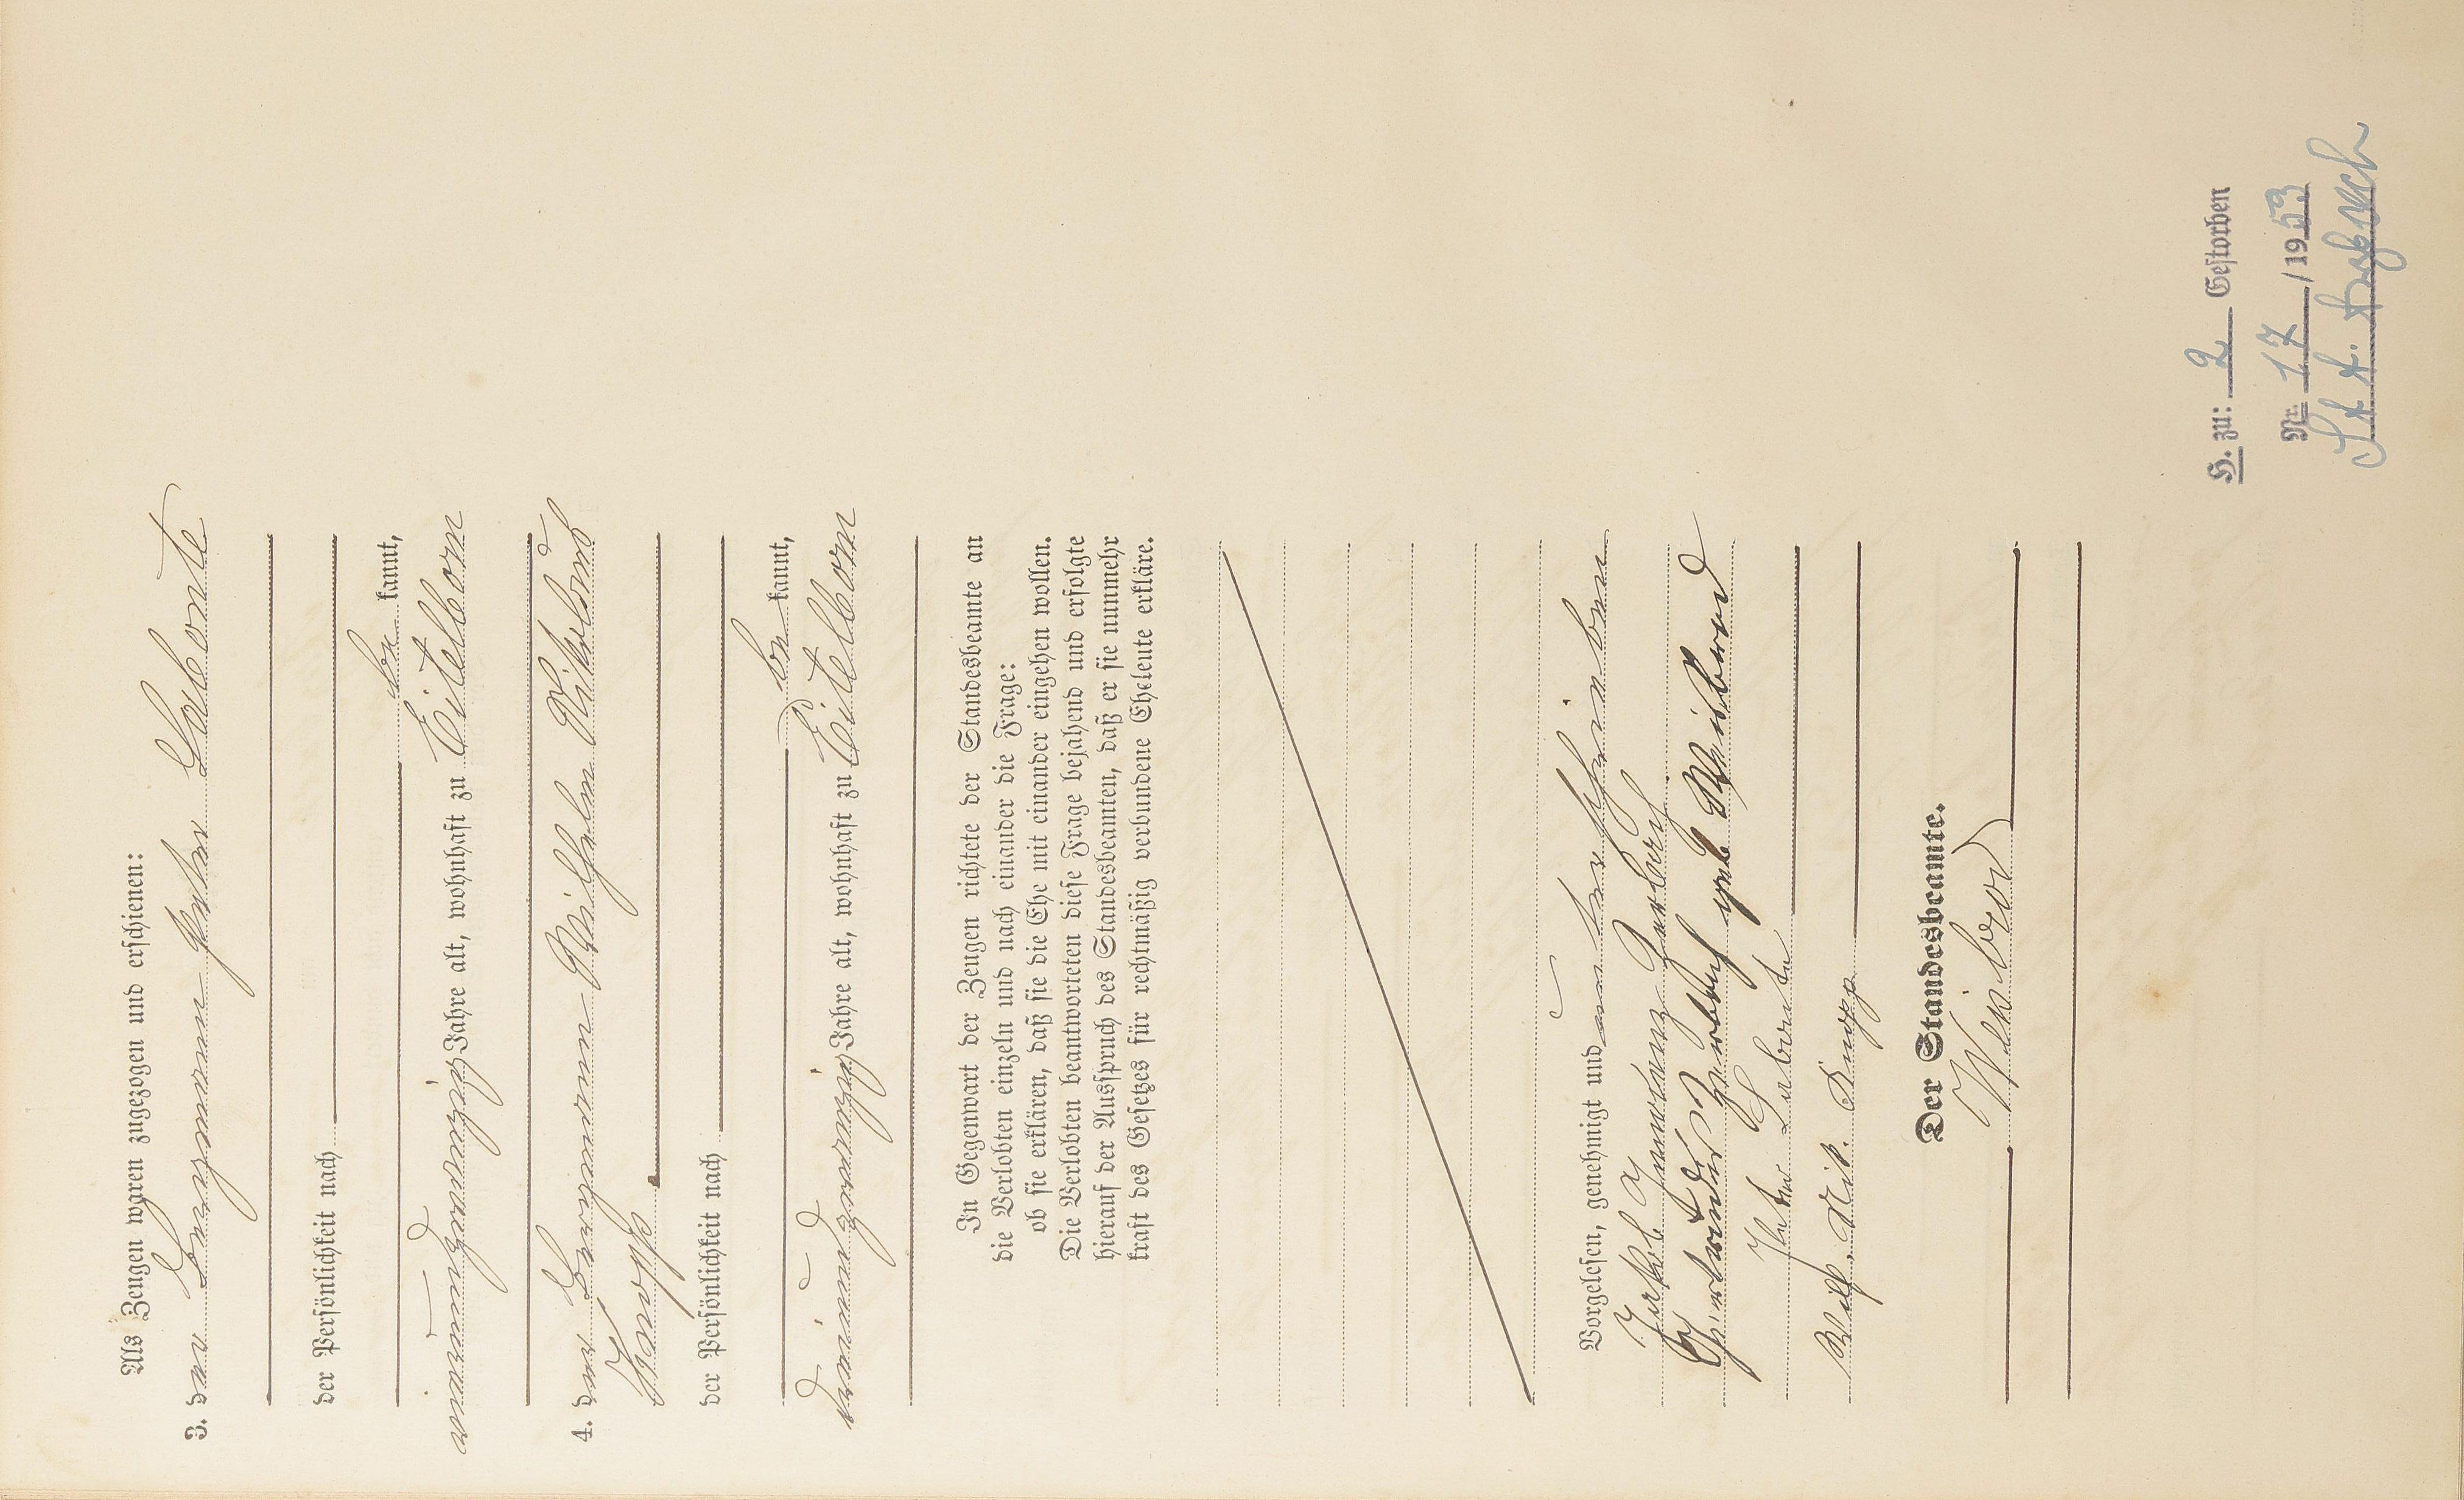 Als Zeugen waren zugezogen und erschienen:
3. der Bergmann Peter Labonte
der Persönlichkeit nach
be kannt,
Jahre alt, wohnhaft zu Eitelborn
4. der Bergmann Wilhelm Nikolaus
Knopp
der Persönlichkeit nach
be kannt,
dreiundzwanzig Jahre alt, wohnhaft zu Eitelborn
In Gegenwart der Zeugen richtete der Standesbeamte an
die Verlobten einzeln und nach einander die Frage:
ob sie erklären, daß sie die Ehe mit einander eingehen wollen.
Die Verlobten beantworteten diese Frage bejahend und erfolgte
hierauf der Ausspruch des Standesbeamten, daß er sie nunmehr
kraft des Gesetzes für rechtmäßig verbundene Eheleute erkläre.
Vorgelesen, genehmigt und von den
Jakob
geb
Peter Labonte
Wilh. Nik. Knopp
Der Standesbeamte.
H. zu: 2 Gestorben
Nr. 17 /1953
St. A.